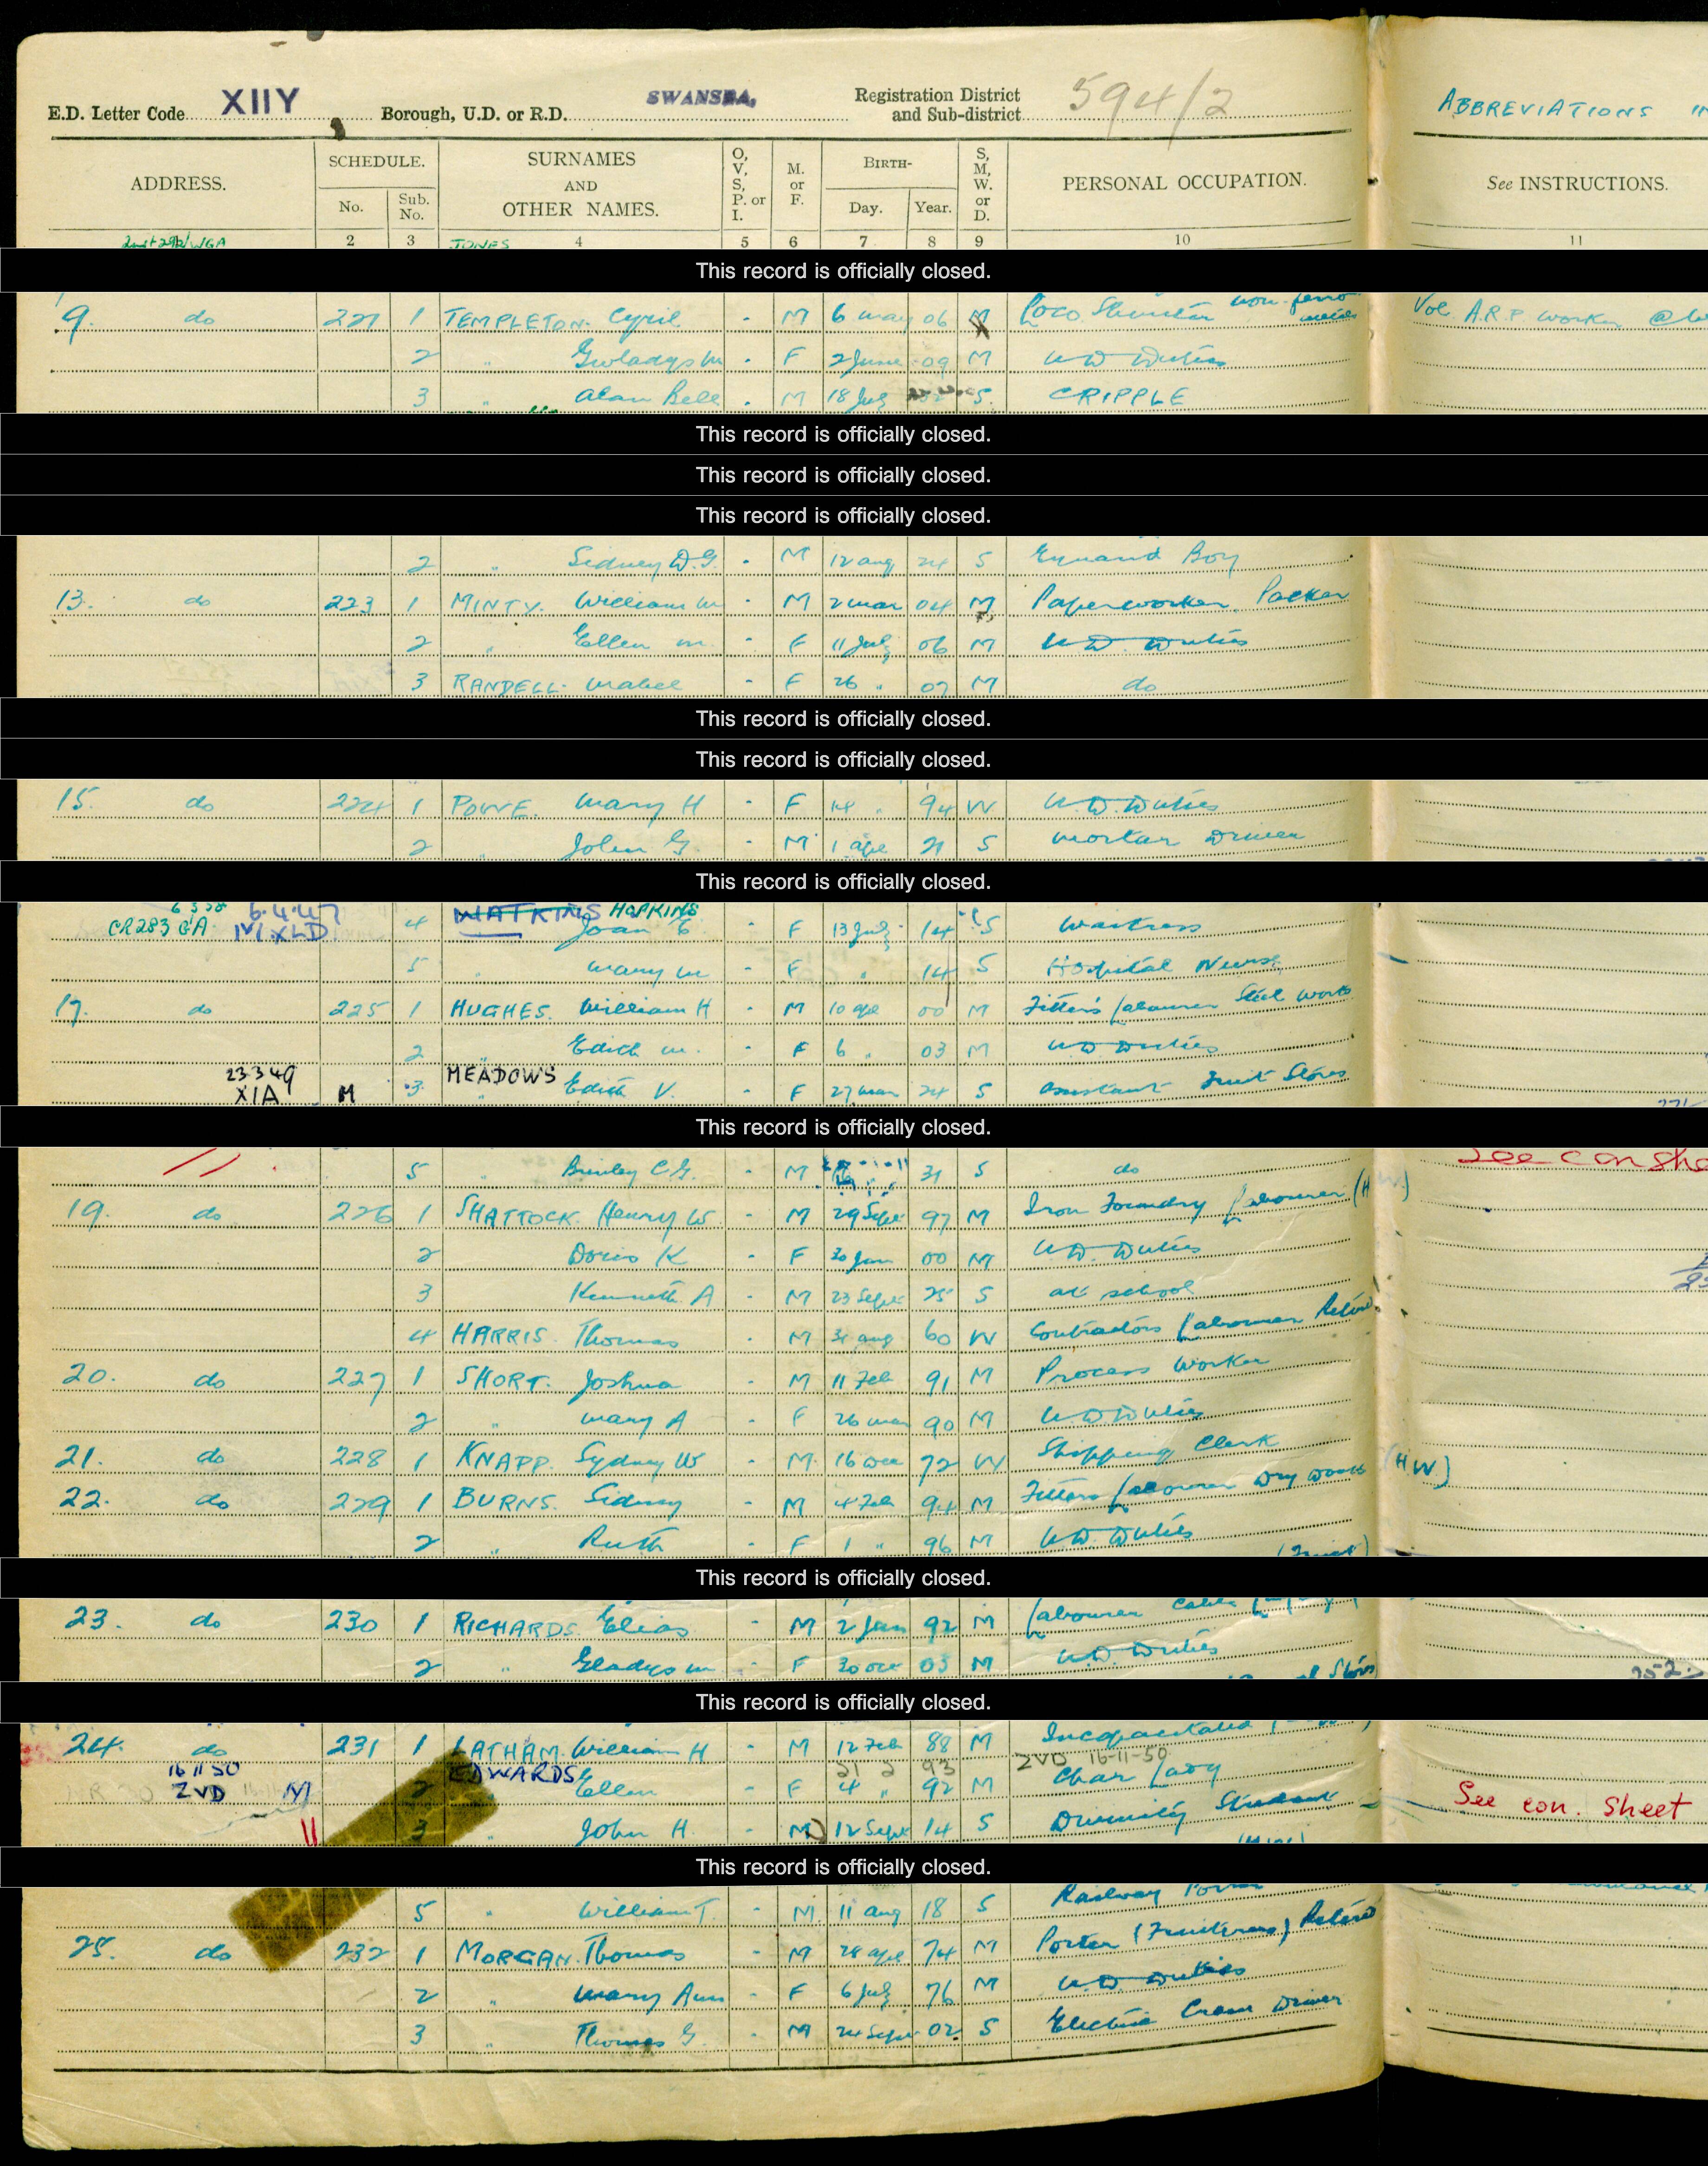 E.D. Letter Code XIIY Borough, U.D. or R.D. SWANSEA, Registration District and Sub-district 594/2 ABBREVIATIONS
ADDRESS. SCHEDULE. No. Sub. No. SURNAMES AND OTHER NAMES. O, V, S, P. or I. M. or F. BIRTH- Day. Year. S, M, W. or D. PERSONAL OCCUPATION. See INSTRUCTIONS.
2 3 JONES 4 5 6 7 8 9 10 11
This record is officially closed.
9. do 221 1 TEMPLETON. Cyril - M 6 may 06 M Loco Shunter non-ferro metals Vol A.R.P. worker
2 " Gwladys M - F 2 June 09 M U D Duties
3 " Alan Bell - M 18 July S. CRIPPLE
This record is officially closed.
This record is officially closed.
This record is officially closed.
2 " Sidney D.G. - M 12 aug 24 S Errand Boy
13. do 223 1 MINTY. William M - M 2 mar 04 M Paperworker Packer
2 " Ellen M. - F 11 July 06 M U.D. Duties
3 RANDELL. Mabel - F 26 " 07 M do
This record is officially closed.
This record is officially closed.
15. do 224 1 POWE. Mary H - F 14 " 94 W U.D. Duties
2 " John G - M 1 apl 21 S Mortar Driver
This record is officially closed.
CR283 GA 6.4.47 WATKINS HOPKINS
4 Joan E - F 13 July 14 S Waitress
5 " Mary M - F " 14 S Hospital Nurse
17. do 225 1 HUGHES. William H - M 10 apl 00 M Fitters labourer Steel works
2 " Edith M. - F 6 " 03 M U D Duties
23 3 49 MEADOWS
XIA M 3 " Edith V. - F 27 mar 24 S assistant Fruit Stores
This record is officially closed.
5 " Brinley C.G. - M 31 S do See con she
19. do 226 1 SHATTOCK. Henry W. - M 29 Sept 97 M Iron Foundry labourer (H.W.)
2 " Doris K - F 30 Jan 00 M U D Duties
3 " Kenneth A - M 23 Sept 25 S at school
4 HARRIS. Thomas - M 31 aug 60 W Contractors labourer Retired
20. do 227 1 SHORT. Joshua - M 11 Feb 91 M Process Worker
2 " Mary A - F 26 mar 90 M U D Duties
21. do 228 1 KNAPP. Sydney W - M 16 Dec 72 W Shipping Clerk
22. do 229 1 BURNS. Sidney - M 4 Feb 94 M Fitters labourer Dry Dock (H.W.)
2 " Ruth - F 1 " 96 M U.D. Duties
This record is officially closed.
23. do 230 1 RICHARDS. Elias - M 2 Jan 92 M labourer
2 " Gladys M - F 30 Dec 03 M U.D. Duties
This record is officially closed.
24. do 231 1 LATHAM. William H - M 12 Feb 88 M Incapacitated
16 11 50 EDWARDS 21 2 93 ZVD 16-11-50
ZVD M 2 Ellen - F 4 " 92 M Char lady See con. sheet
3 " John H. - M 12 Sept 14 S Divinity Student
This record is officially closed.
5 " William T. - M 11 aug 18 S Railway Porter
25. do 232 1 MORGAN. Thomas - M 28 apl 74 M Porter (Fruiterers) Retired
2 " Mary Ann - F 6 July 76 M U.D. Duties
3 " Thomas G. - M 24 Sept 02 S Electric Crane Driver